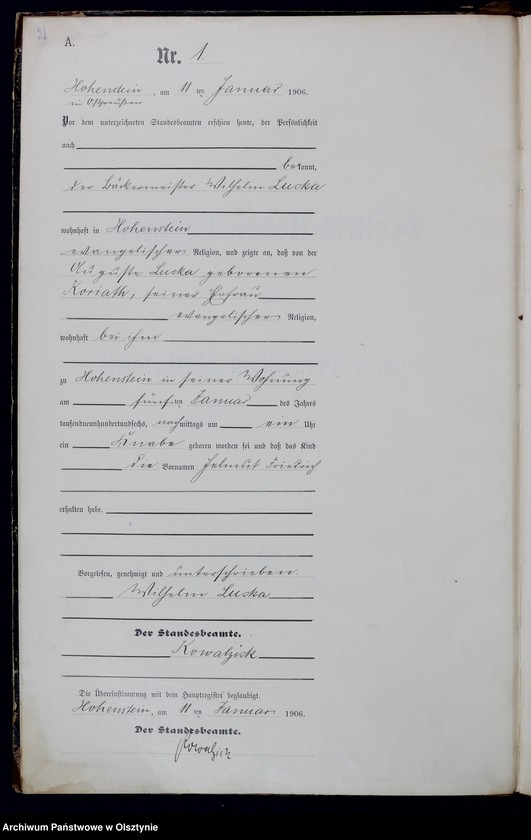 A.
Nr. 1
Hohenstein, am 11 ten Januar 1906.
in Ostpreußen
Vor dem unterzeichneten Standesbeamten erschien heute, der Persönlichkeit
nach
bekannt,
der Bäckermeister Wilhelm Lucka
wohnhaft in Hohenstein
evangelischer Religion, und zeigte an, daß von der
Auguste Lucka geborenen
Koriath, seiner Ehefrau
evangelischer Religion,
wohnhaft bei ihm
zu Hohenstein in seiner Wohnung
am fünften Januar des Jahres
tausendneunhundertundsechs, nachmittags um ein Uhr
ein Knabe geboren worden sei und daß das Kind
die Vornamen Helmut Friedrich
erhalten habe.
Vorgelesen, genehmigt und unterschrieben.
Wilhelm Lucka
Der Standesbeamte.
Kowalzick
Die Übereinstimmung mit dem Hauptregister beglaubigt.
Hohenstein, am 11 ten Januar 1906.
Der Standesbeamte.
Kowalzick
Archiwum Państwowe w Olsztynie